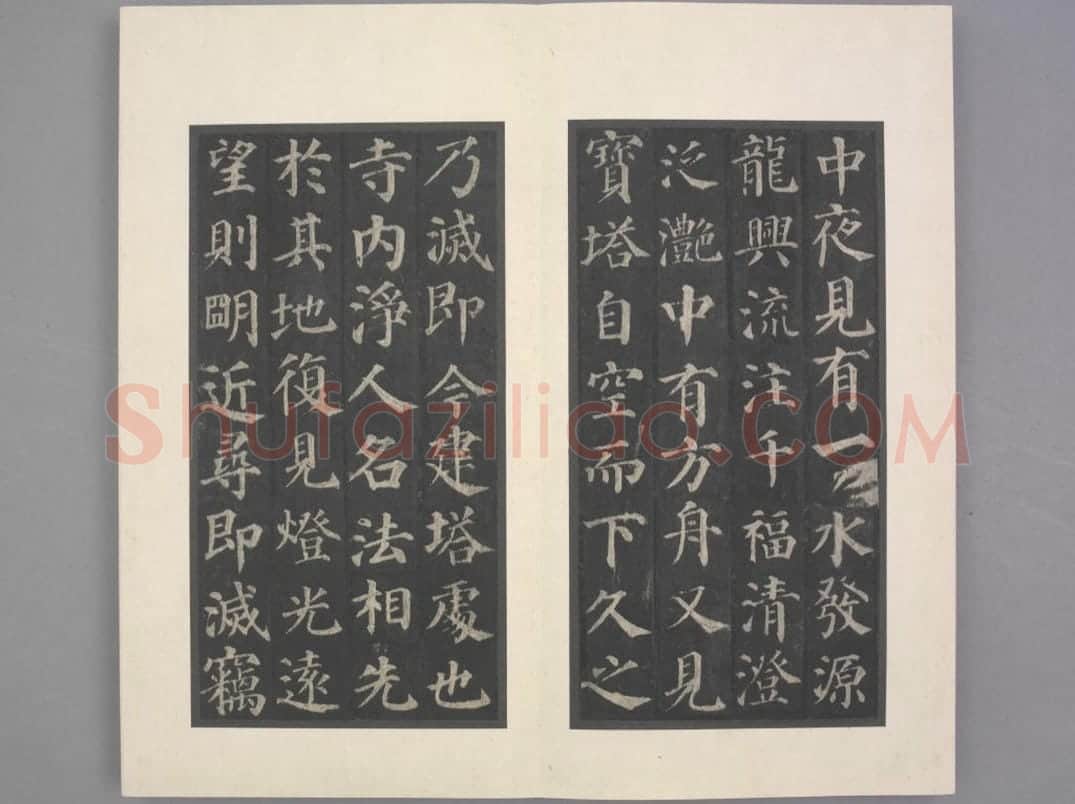 中夜見有一水發源
龍興流注千福清澄
泛灎中有方舟又見
寶塔自空而下久之
乃滅即今建塔處也
寺內淨人名法相先
於其地復見燈光遠
望則明近尋即滅竊
Shufaziliao.COM